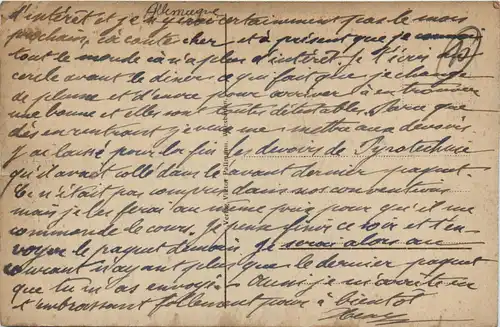 Allemagne
d'intérêt et je n'y irai certainement pas le mois
prochain, ça coûte cher et à présent que je connais
tout le monde ça n'a plus d'intérêt. Je t'écris au
cercle avant le diner ce qui fait que je change
de plume et d'encre pour arriver à en trouver
une bonne et elles sont toutes détestables. Parce que
dès en rentrant je veux me mettre aux devoirs.
J'ai laissé pour la fin les devoirs de Pyrotechnie
qu'il avait collé dans le avant dernier paquet.
Ce n'était pas compris dans nos conventions
mais je les ferai au même prix pour qu'il me
commande le cours. Je pense finir ce soir et t'en-
voyer le paquet demain. Je serai alors au
courant n'ayant plus que le dernier paquet
que tu m'as envoyé. Aussi je m'arrête en
t'embrassant follement pour à bientôt